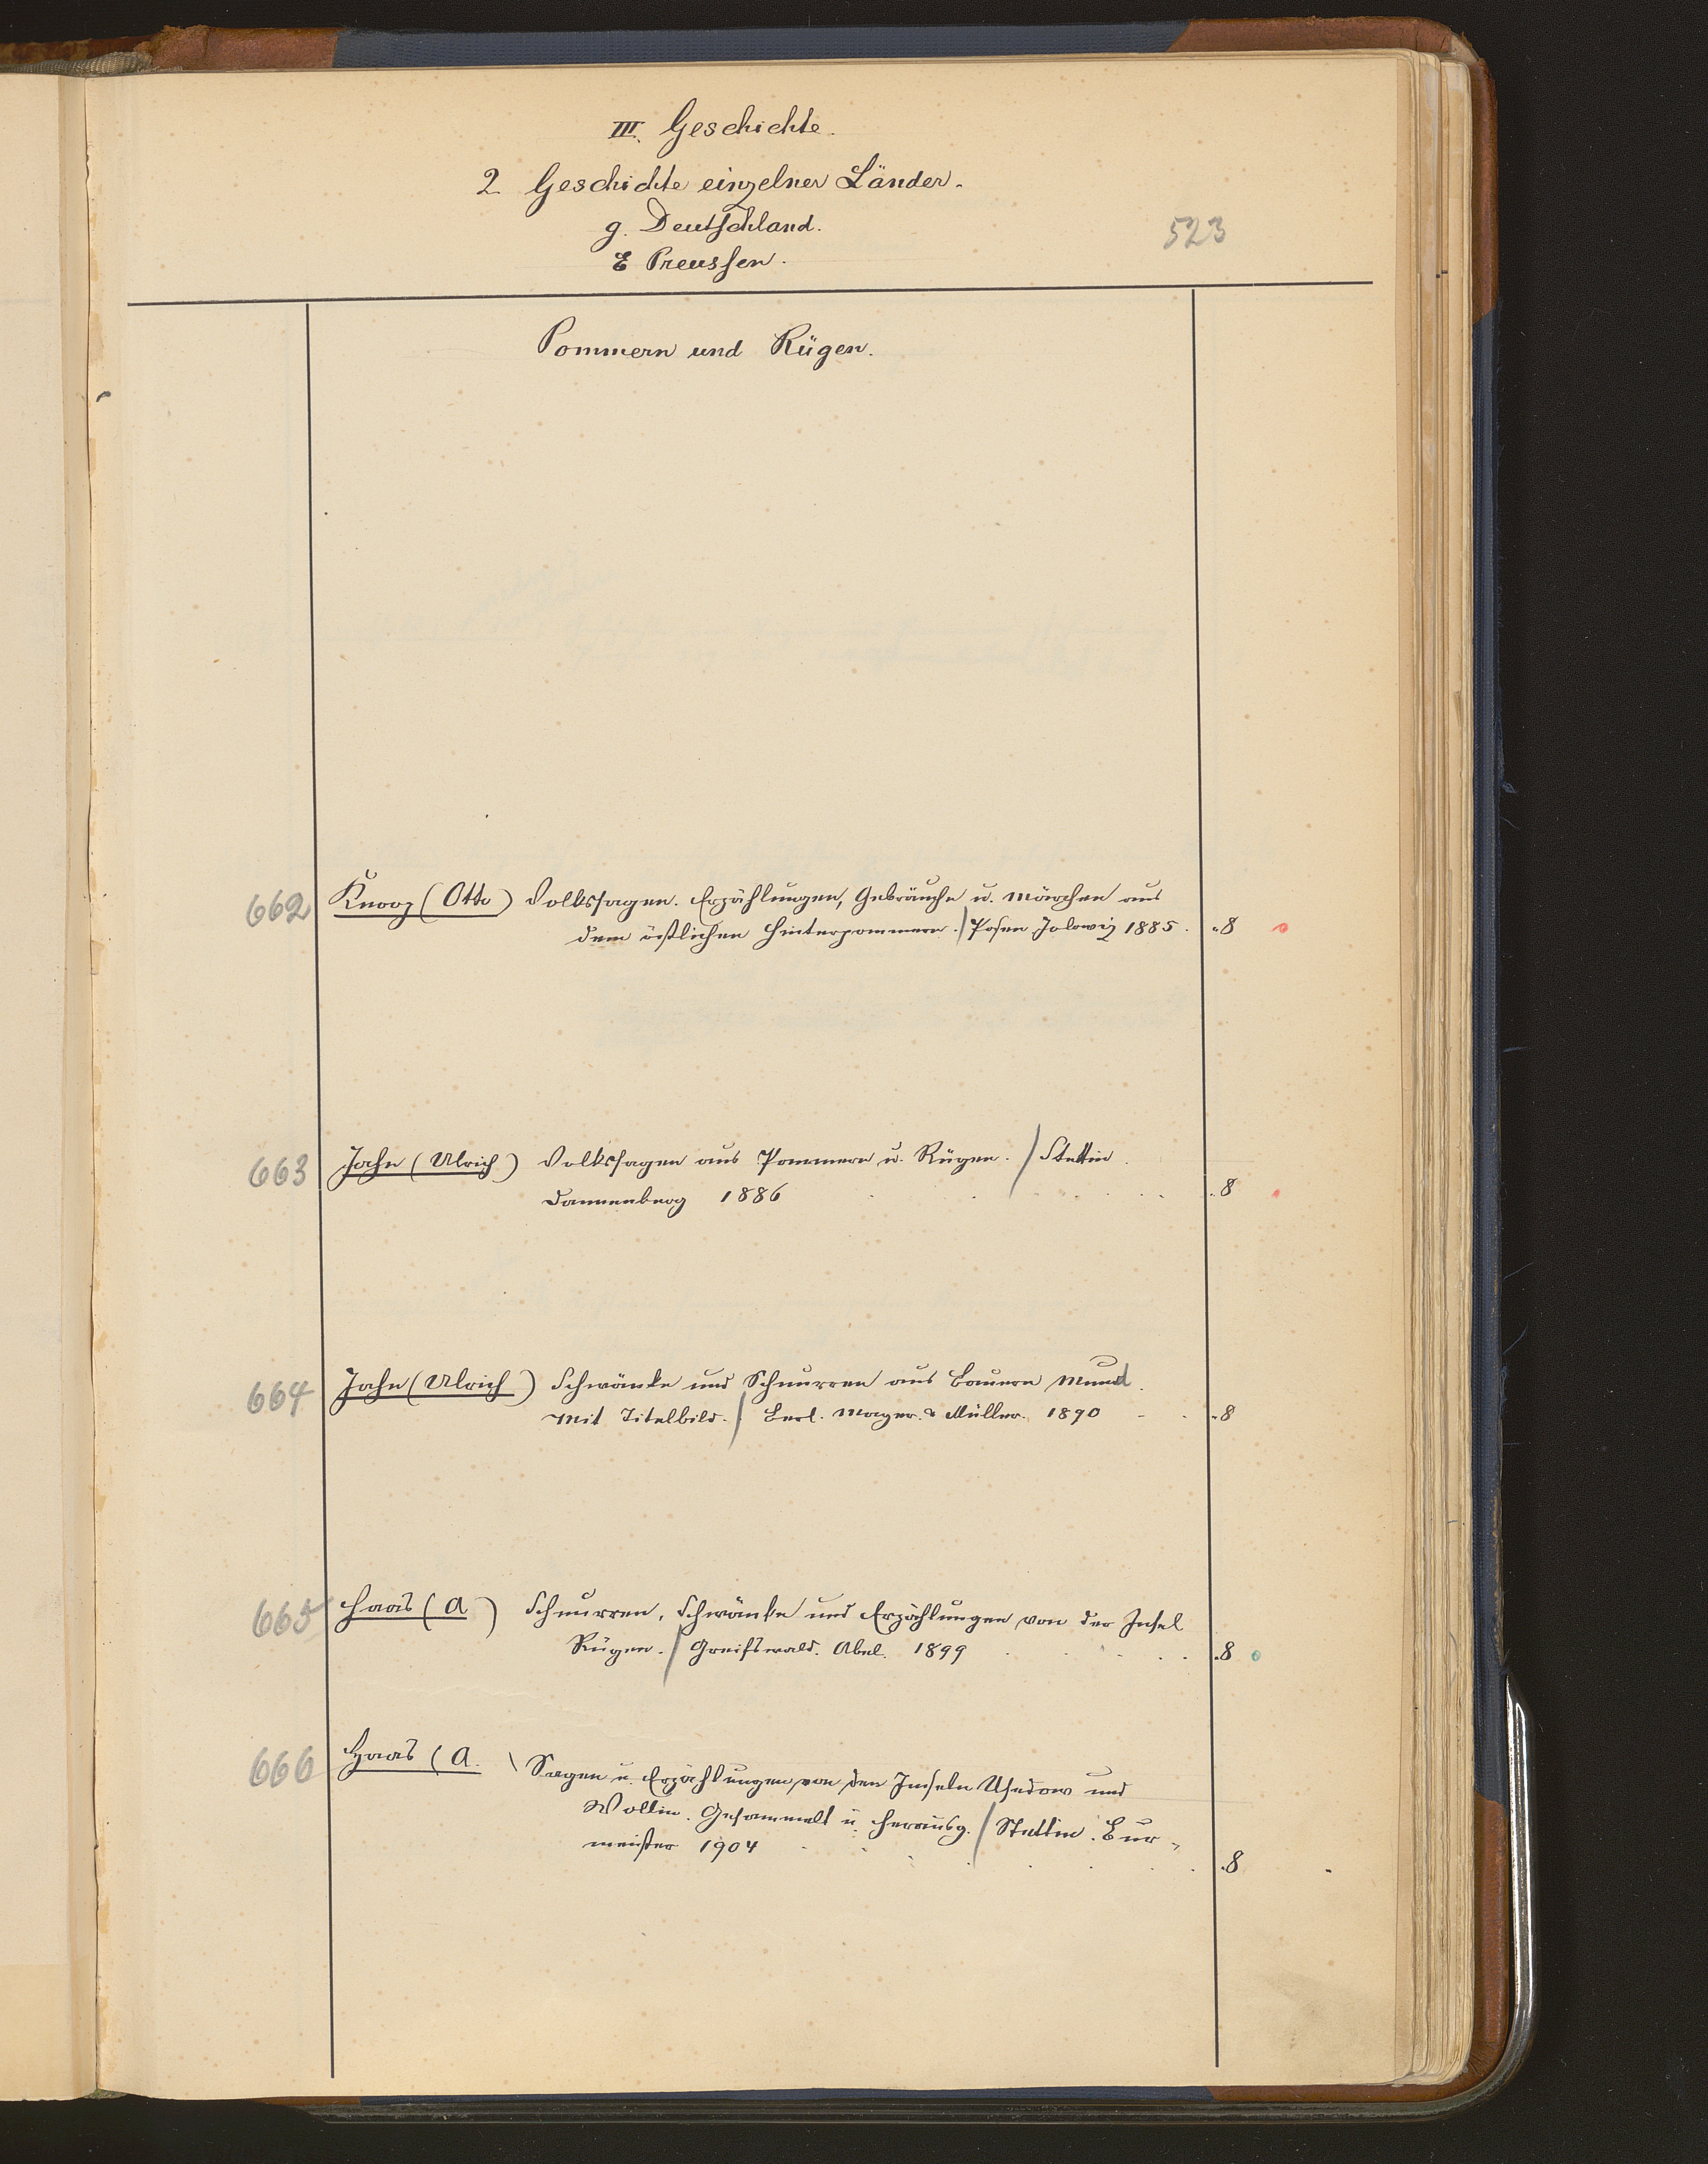 III. Geschichte.
2 Geschichte einzelner Länder.
g. Deutschland.
523
E Preussen.
Pommern und Rügen.
662 Knoop (Otto) Volkssagen. Erzählungen, Gebräuche u. Märchen aus
dem östlichen Hinterpommern. / Posen Jolowiz 1885. .8
663 Jahn (Ulrich) Volkssagen aus Pommern u. Rügen. / Stettin.
Dannenberg 1886 . . . . . . .8
664 Jahn (Ulrich) Schwänke und Schnurren aus Bauern Mund.
Mit Titelbild. / Berl. Mayer & Müller. 1890 - . .8
665 Haas (A) Schnurren, Schwänke und Erzählungen von der Insel
Rügen. / Greifswald. Abel. 1899 . . . . . .8
666 Haas (A. ) Sagen u. Erzählungen von den Inseln Usedom und
Wollin. Gesammelt u. herausg. / Stettin. Bur-
meister 1904 . . . . . . . .8